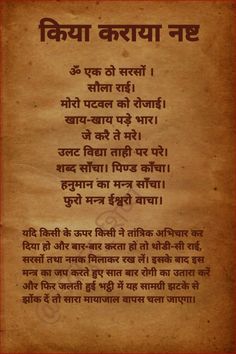 किया कराया नष्ट
ॐ एक ठो सरसों ।
सौला राई।
मोरो पटवल को रोजाई।
खाय-खाय पड़े भार।
जे करै ते मरे।
उलट विद्या ताही पर परे।
शब्द साँचा। पिण्ड काँचा।
हनुमान का मन्त्र साँचा।
फुरो मन्त्र ईश्वरो वाचा।
यदि किसी के ऊपर किसी ने तांत्रिक अभिचार कर
दिया हो और बार-बार करता हो तो थोडी-सी राई,
सरसों तथा नमक मिलाकर रख लें। इसके बाद इस
मन्त्र का जप करते हुए सात बार रोगी का उतारा करें
और फिर जलती हुई भट्टी में यह सामग्री झटके से
झोंक दें तो सारा मायाजाल वापस चला जाएगा।